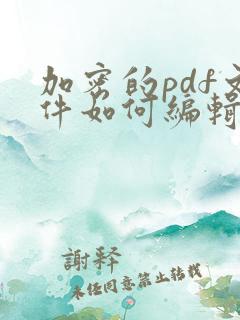 加密的pdf文
件如何编辑
謝释
未经同意禁止转载